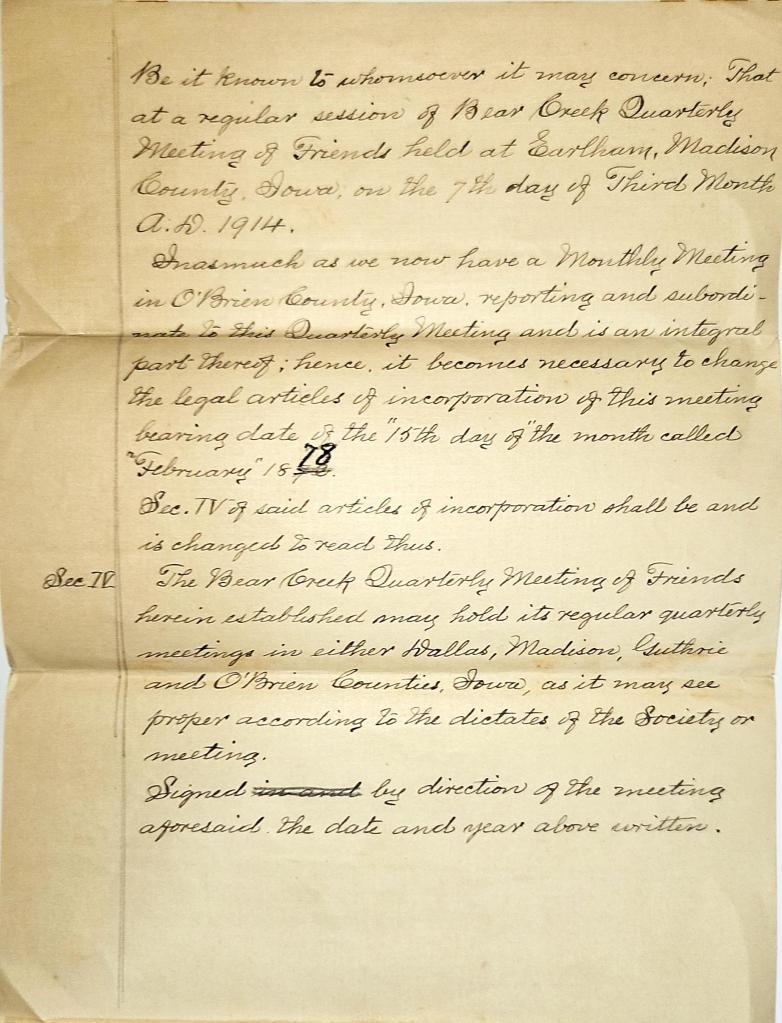 Be it known to whomsoever it may concern; That
at a regular session of Bear Creek Quarterly
Meeting of Friends held at Earlham, Madison
County, Iowa, on the 7th day of Third Month
A.D. 1914.
Inasmuch as we now have a Monthly Meeting
in O'Brien County, Iowa, reporting and subordi-
nate to this Quarterly Meeting and is an integral
part thereof; hence, it becomes necessary to change
the legal articles of incorporation of this meeting
bearing date of the "15th day of" the month called
"February" 1878.
Sec. IV of said articles of incorporation shall be and
is changed to read thus.
Sec IV The Bear Creek Quarterly Meeting of Friends
herein established may hold its regular quarterly
meetings in either Dallas, Madison, Guthrie
and O'Brien Counties, Iowa, as it may see
proper according to the dictates of the Society or
meeting.
Signed in and by direction of the meeting
aforesaid the date and year above written.